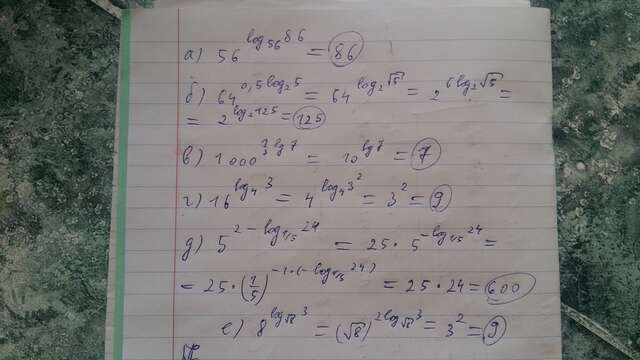 а) 56^{log_{56} 86} = 86
б) 64^{0,5 log_2 5} = 64^{log_2 √5} = 2^{6 log_2 √5} =
= 2^{log_2 125} = 125
в) 1000^{⅓ lg 7} = 10^{lg 7} = 7
г) 16^{log_4 3} = 4^{log_4 3^2} = 3^2 = 9
д) 5^{2 - log_{1/5} 24} = 25 · 5^{-log_{1/5} 24} =
= 25 · (1/5)^{-1·(-log_{1/5} 24)} = 25 · 24 = 600
е) 8^{log_{√8} 3} = (√8)^{2 log_{√8} 3} = 3^2 = 9